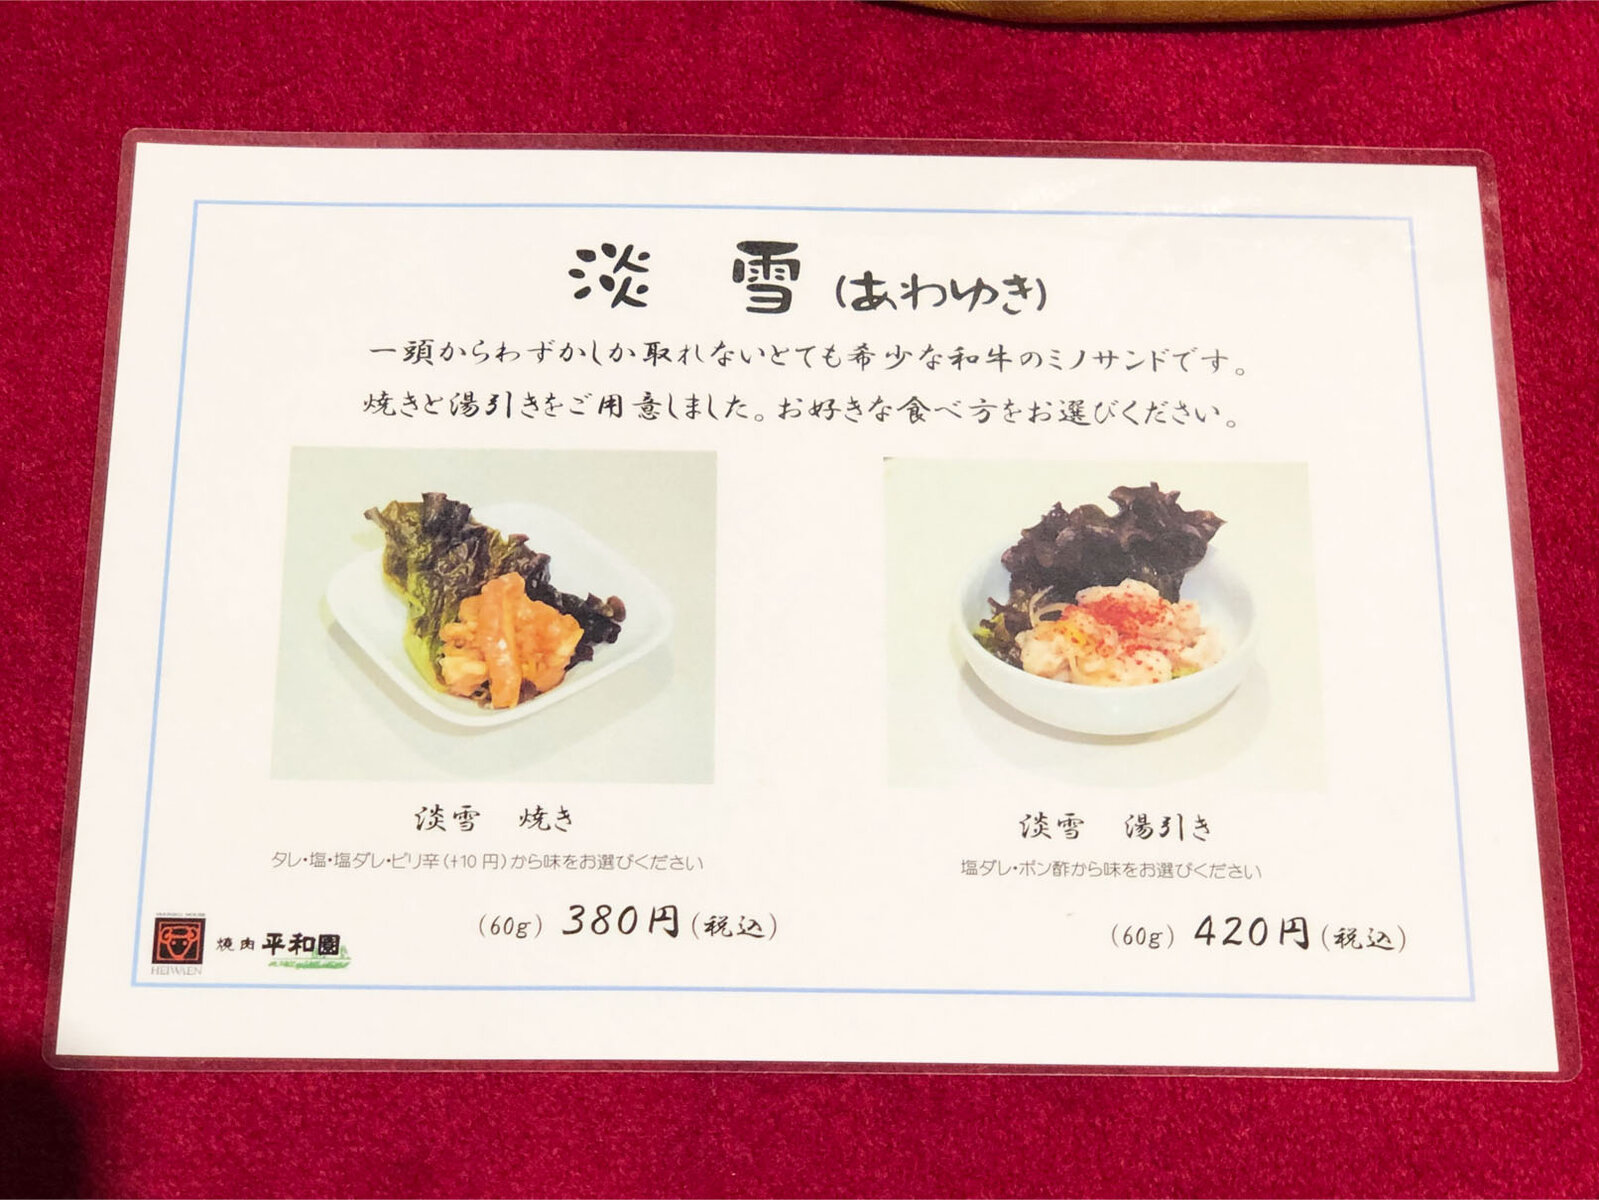 淡雪(あわゆき)
一頭からわずかしか取れないとても希少な和牛のミノサンドです。
焼きと湯引きをご用意しました。お好きな食べ方をお選びください。
淡雪 焼き
タレ・塩・塩ダレ・ピリ辛(+10円)から味をお選びください
(60g) 380円(税込)
淡雪 湯引き
塩ダレ・ポン酢から味をお選びください
(60g) 420円(税込)
HEIWAEN
焼肉 平和園